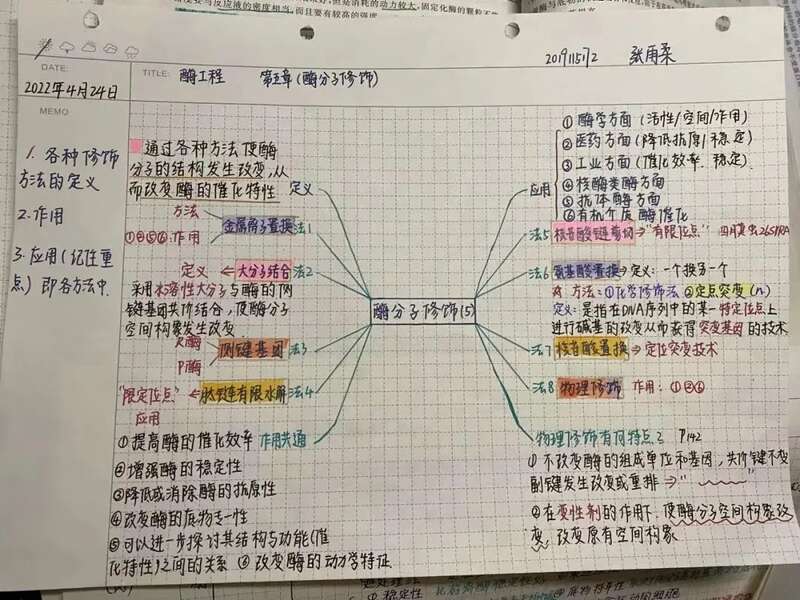 度要与反应液的密度相当,而且要有较高的强度
DATE:
2022年4月24日
TITLE: 酶工程 第五章(酶分子修饰)
2019115172 张雨柔
MEMO
1. 各种修饰
方法的定义
2.作用
3.应用(记住重
点)即各方法中.
通过各种方法使酶
分子的结构发生改变,从
而改变酶的催化特性 定义
方法
金属离子置换 法1
①②⑤⑥.作用
定义 ← 大分子结合 法2
采用水溶性大分子与酶的侧
键基因共价结合,使酶分子
空间构象发生改变.
R酶
P酶
侧键基因 法3
"限定位点" ← 肽链有限水解 法4
应用
作用共通
①提高酶的催化效率
②增强酶的稳定性
③降低或消除酶的抗原性
④改变酶的底物专一性
⑤可以进一步探讨其结构与功能(催
化特性)之间的关系 ⑥改变酶的动力学特征
酶分子修饰(5)
应用
①酶学方面(活性/空间/作用)
②医药方面(降低抗原/稳定)
③工业方面(催化效率.稳定)
④核酶类酶方面
⑤抗体酶方面
⑥有机介质酶催化
法5 核苷酸链剪切 → "有限位点" 四膜虫26SrRNA
法6 氨基酸置换 → 定义: 一个换另一个
方法: ①化学修饰法 ②定点突变(n)
定义: 是指在DNA序列中的某一特定位点上
进行碱基的改变从而获得突变基因的技术
法7 核苷酸置换 → 定位突变技术
法8 物理修饰 作用: ①②⑥
物理修饰有何特点? P142
①不改变酶的组成单位和基因,共价键不变
副键发生改变或重排 → "
②在变性剂的作用下,使酶分子空间构象改
变,改变原有空间构象